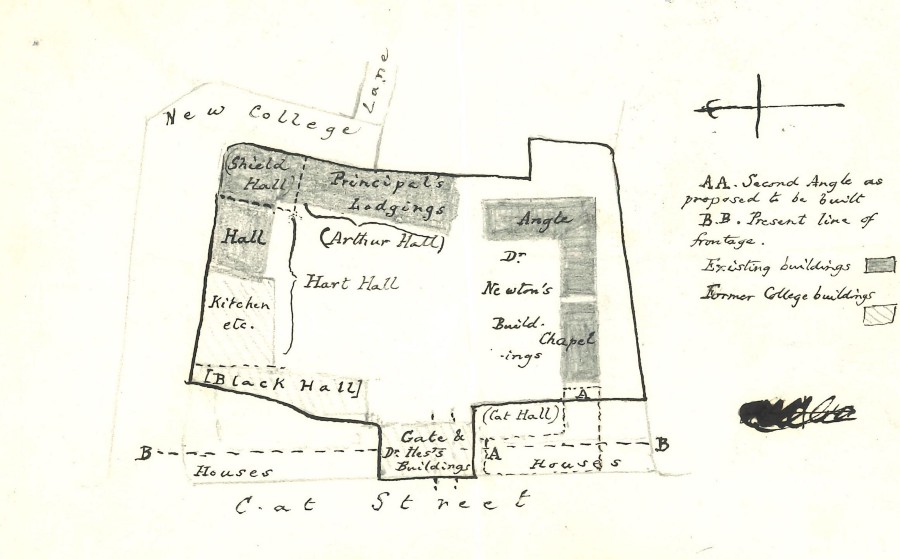 Lane
New College
(Shield
Hall)
Principal's
Lodgings
(Arthur Hall)
Hall
Hart Hall
Kitchen
etc.
[Black Hall]
Angle
Dr
Newton's
Build-
-ings
Chapel
A
(Cat Hall)
Gate &
Buildings
A
B
B
Houses
Houses
Cat Street
AA. Second Angle as
proposed to be built
B.B. Present line of
frontage.
Existing buildings
Former College buildings